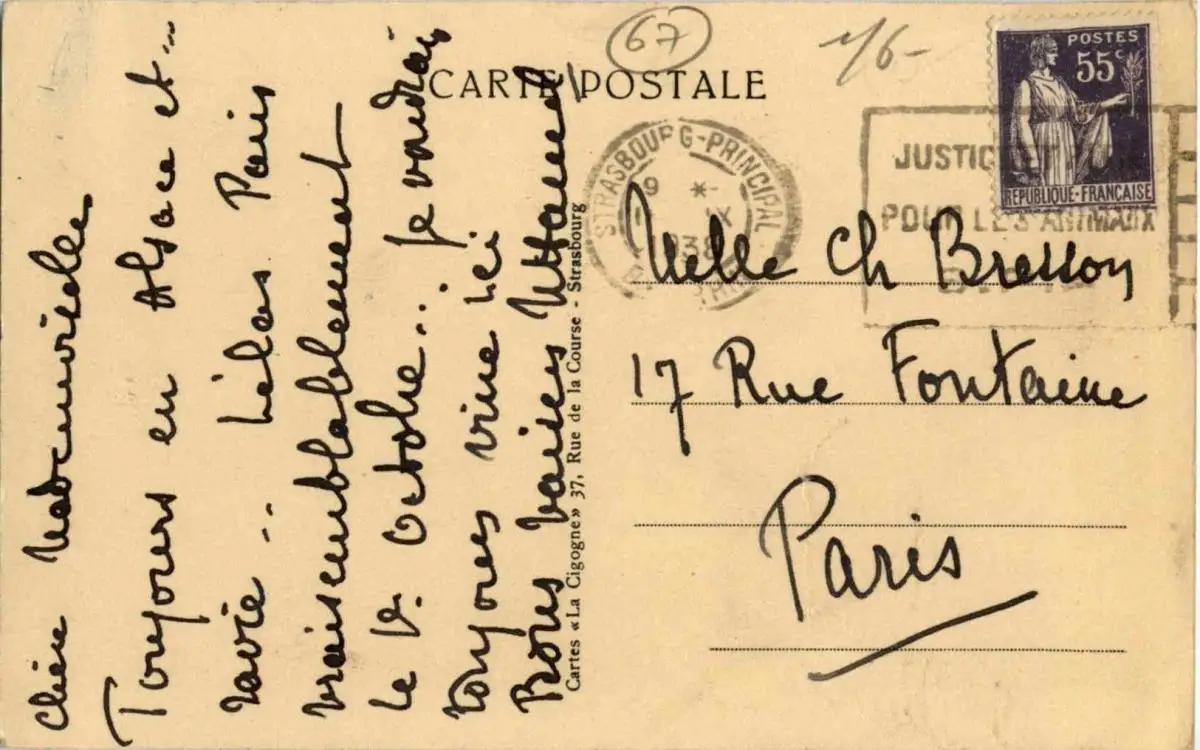 CARTE POSTALE
67
1/6-
POSTES
55c
REPUBLIQUE-FRANÇAISE
STRASBOURG-PRINCIPAL
9 *
IX
1938
JUSTICE ET
POUR LES ANIMAUX
chère Mademoiselle
Toujours en Alsace et...
ravie... hélas Paris
vraisemblablement
le Octobre... je voudrais
toujours vivre ici
Bons baisers
Cartes «La Cigogne» 37, Rue de la Course - Strasbourg
Melle Ch Bresson
17 Rue Fontaine
Paris